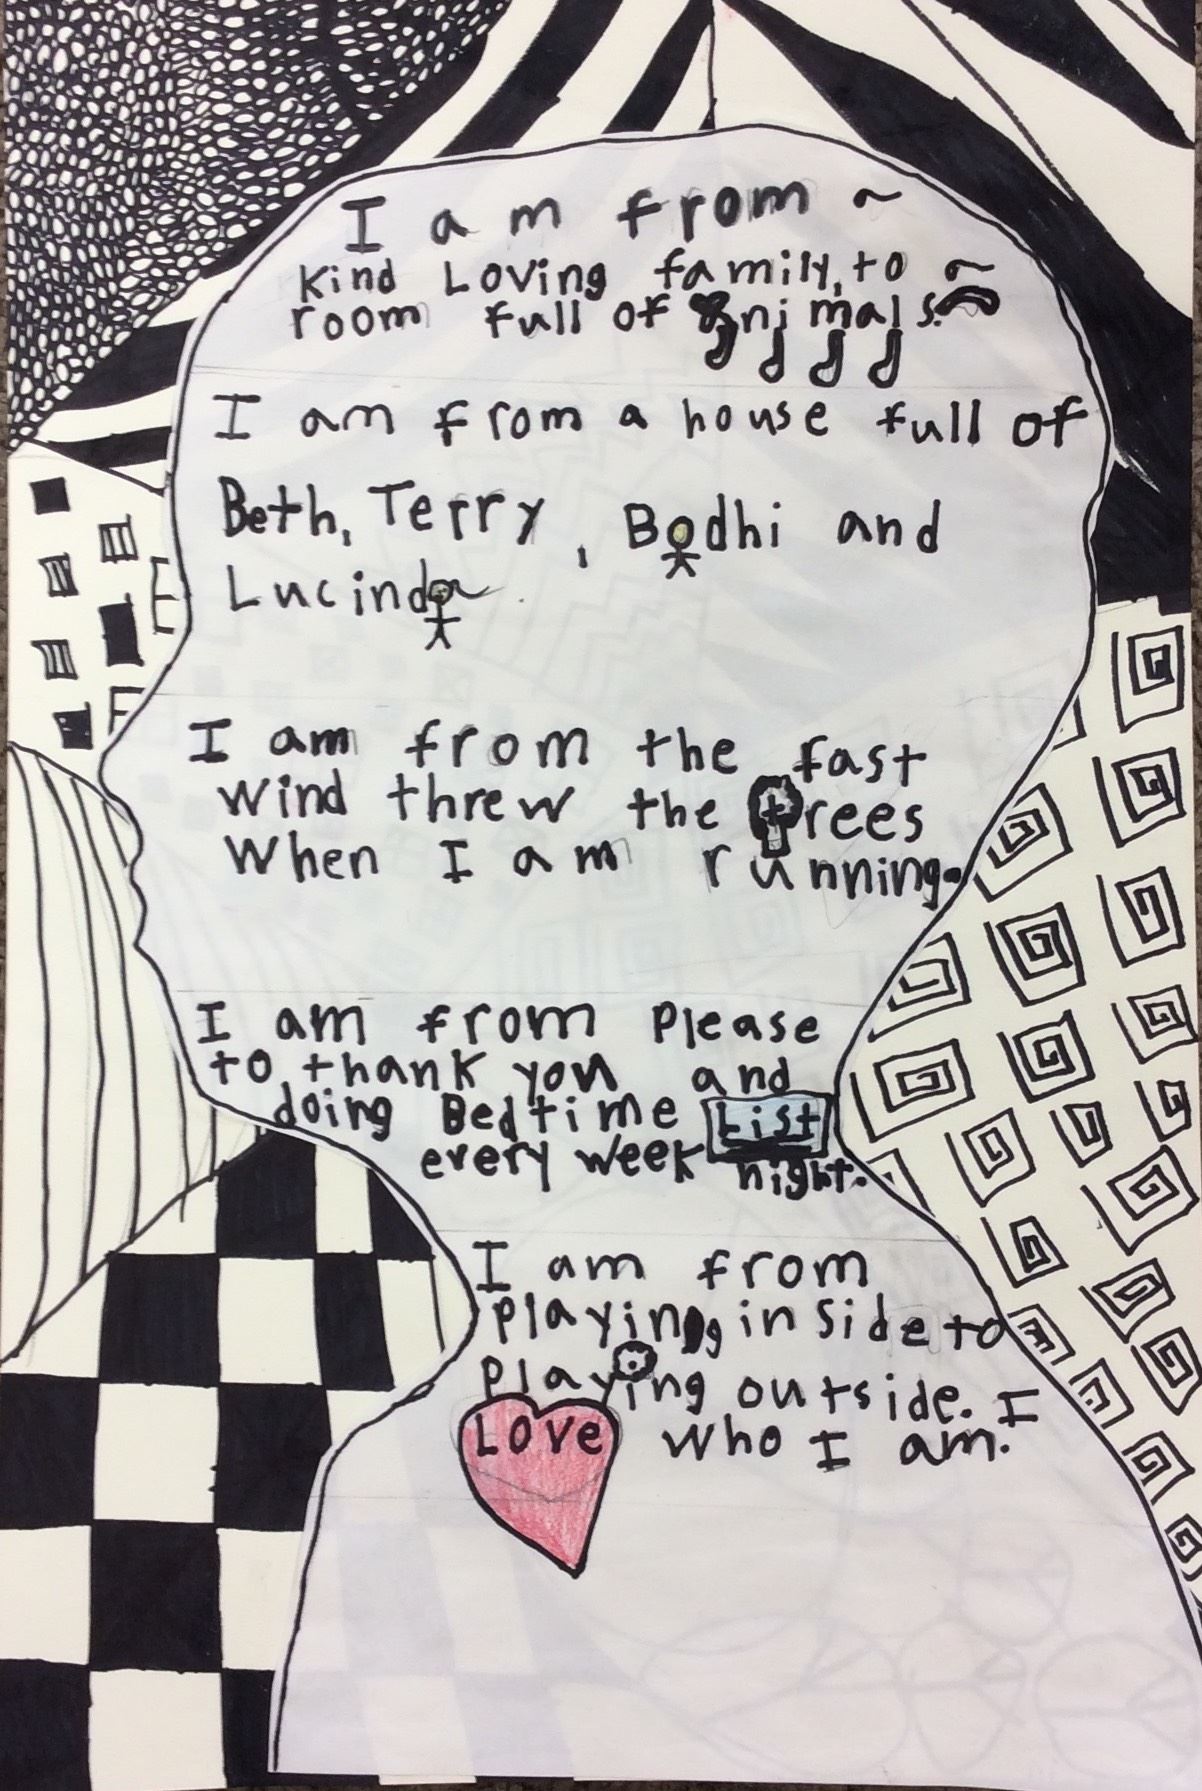 I am from ~
Kind Loving family, to ~
room full of animals.
I am from a house full of
Beth, Terry, Bodhi and
Lucinda.
I am from the fast
wind threw the trees
When I am running.
I am from Please
to thank you and
doing Bedtime List
every week night.
I am from
playing inside to
playing outside. I
Love who I am.